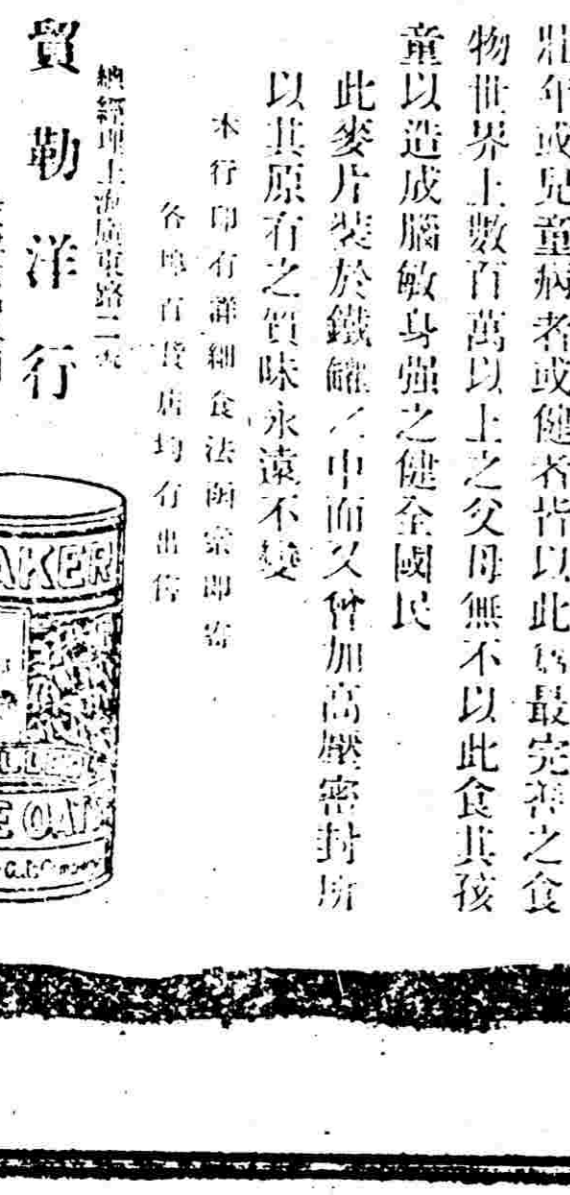 壯年或兒童病者或健者皆以此爲最完善之食
物世界上數百萬以上之父母無不以此食其孩
童以造成腦敏身强之健全國民
此麥片裝於鐵罐之中而又曾加高壓密封所
以其原有之質味永遠不變
本行印有詳細食法函索即寄
各埠百貨店均有出售
總經理上海廣東路二號
貿勒洋行
AKER
E OATS